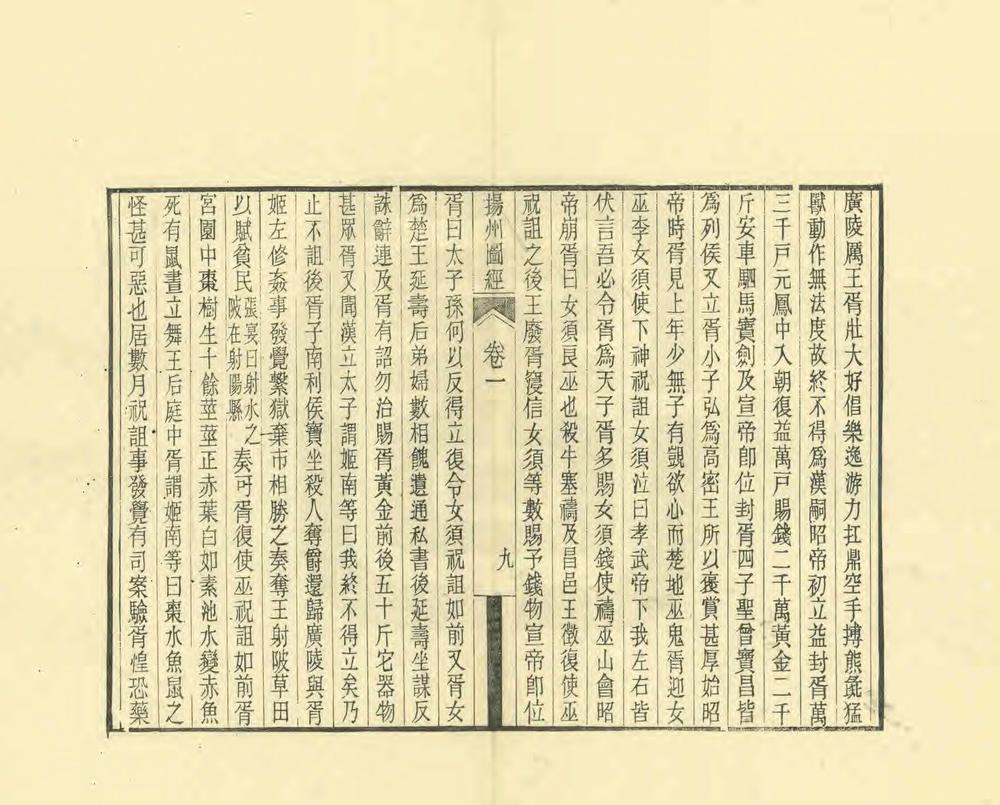 廣陵厲王胥壯大好倡樂逸游力扛鼎空手搏熊彘猛
獸動作無法度故終不得爲漢嗣昭帝初立益封胥萬
三千戸元鳳中入朝復益萬戸賜錢二千萬黃金二千
斤安車駟馬寶劍及宣帝卽位封胥四子聖曾寶昌皆
爲列侯又立胥小子弘爲高密王所以襃賞甚厚始昭
帝時胥見上年少無子有覬欲心而楚地巫鬼胥迎女
巫李女須使下神祝詛女須泣曰孝武帝下我左右皆
伏言吾必令胥爲天子胥多賜女須錢使禱巫山會昭
帝崩胥曰女須良巫也殺牛塞禱及昌邑王徵復使巫
祝詛之後王廢胥寖信女須等數賜予錢物宣帝卽位
揚州圖經 卷一 九
胥曰太子孫何以反得立復令女須祝詛如前又胥女
爲楚王延壽后弟婦數相餽遺通私書後延壽坐謀反
誅辭連及胥有詔勿治賜胥黃金前後五十斤宅器物
甚眾胥又聞漢立太子謂姬南等曰我終不得立矣乃
止不詛後胥子南利侯寶坐殺人奪爵還歸廣陵與胥
姬左修姦事發覺繫獄棄市相勝之奏奪王射陂草田
以賦貧民張晏曰射水之陂在射陽縣奏可胥復使巫祝詛如前胥
宮園中棗樹生十餘莖莖正赤葉白如素池水變赤魚
死有鼠晝立舞王后庭中胥謂姬南等曰棗水魚鼠之
怪甚可惡也居數月祝詛事發覺有司案驗胥惶恐藥